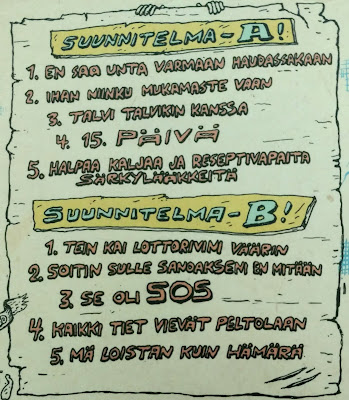 SUUNNITELMA-A!
1. EN SAA UNTA VARMAAN HAUDASSAKAAN
2. IHAN NIINKU MUKAMASTE VAAN
3. TALVI TALVIKIN KANSSA
4. 15. PÄIVÄ
5. HALPAA KALJAA JA RESEPTIVAPAITA
SÄRKYLÄÄKKEITÄ
SUUNNITELMA-B!
1. TEIN KAI LOTTORIVINI VÄÄRIN
2. SOITIN SULLE SANOAKSENI EN MITÄÄN
3. SE OLI SOS
4. KAIKKI TIET VIEVÄT PELTOLAAN
5. MÄ LOISTAN KUIN HÄMÄRÄ